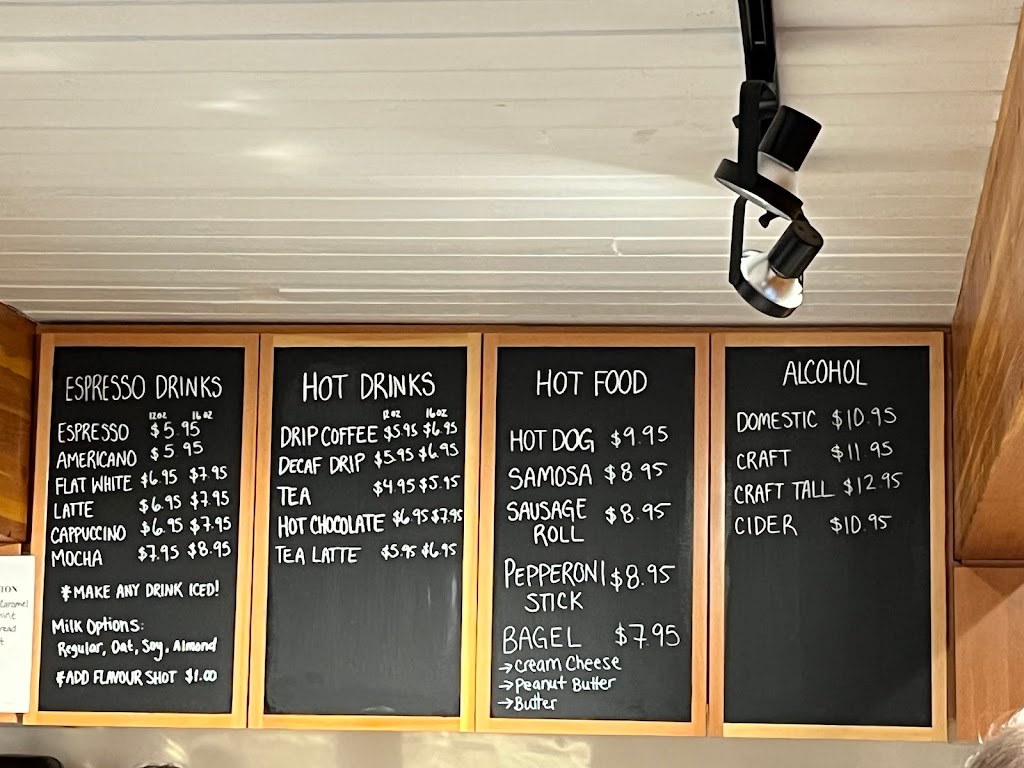 ESPRESSO DRINKS
12 oz 16 oz
ESPRESSO $5.95
AMERICANO $5.95
FLAT WHITE $6.95 $7.95
LATTE $6.95 $7.95
CAPPUCCINO $6.95 $7.95
MOCHA $7.95 $8.95
*MAKE ANY DRINK ICED!
Milk Options:
Regular, Oat, Soy, Almond
*ADD FLAVOUR SHOT $1.00
HOT DRINKS
12 oz 16 oz
DRIP COFFEE $5.95 $6.95
DECAF DRIP $5.95 $6.95
TEA $4.95 $5.95
HOT CHOCOLATE $6.95 $7.95
TEA LATTE $5.95 $6.95
HOT FOOD
HOT DOG $9.95
SAMOSA $8.95
SAUSAGE $8.95
ROLL
PEPPERONI $8.95
STICK
BAGEL $7.95
→Cream Cheese
→Peanut Butter
→Butter
ALCOHOL
DOMESTIC $10.95
CRAFT $11.95
CRAFT TALL $12.95
CIDER $10.95
Caramel